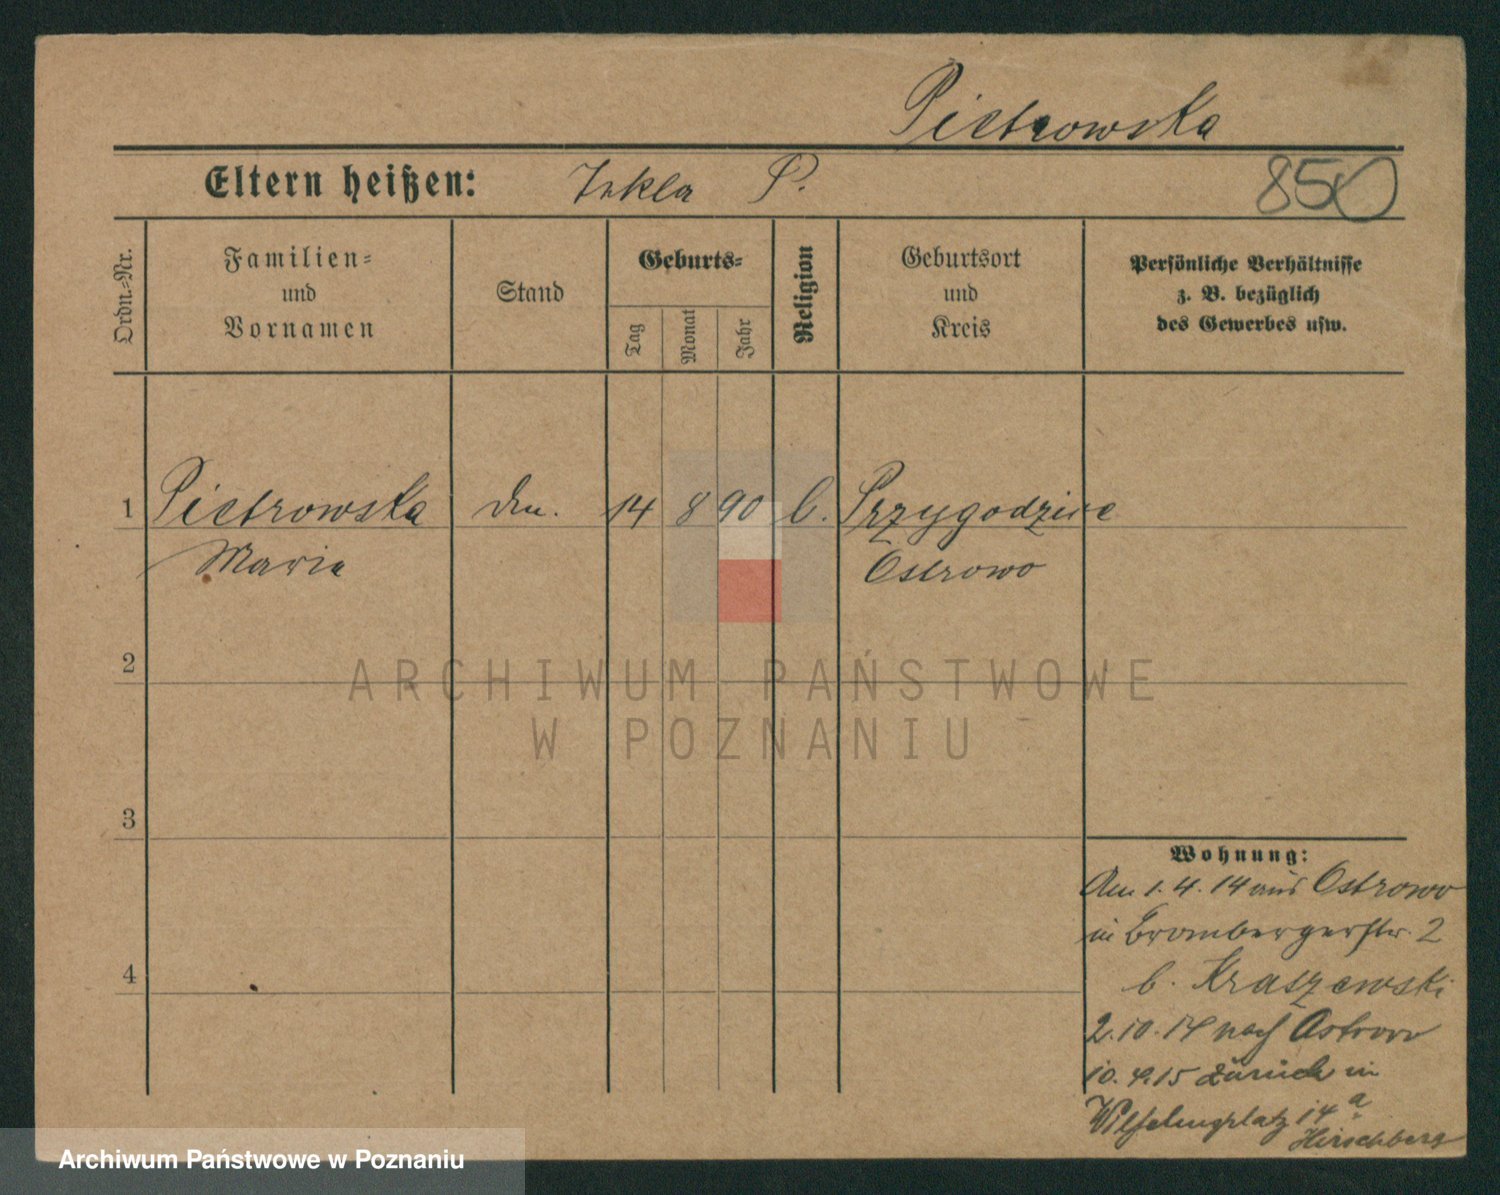 Pietrowska
Eltern heißen: Tekla P.
850
Ordn.-Nr.
Familien-
und
Vornamen
Stand
Geburts-
Tag
Monat
Jahr
Religion
Geburtsort
und
Kreis
Persönliche Verhältnisse
z. B. bezüglich
des Gewerbes usw.
1 Pietrowska 14 8 90 Przygodzice
Maria Ostrowo
2
ARCHIWUM PAŃSTWOWE
W POZNANIU
3
4
Wohnung:
Am 1.4.14 aus Ostrowo
in Brombergerstr. 2
b. Kraszewski
2.10.14 nach Ostrowo
10.4.15 zurück in
Wilhelmplatz 14a
Hirschberg
Archiwum Państwowe w Poznaniu